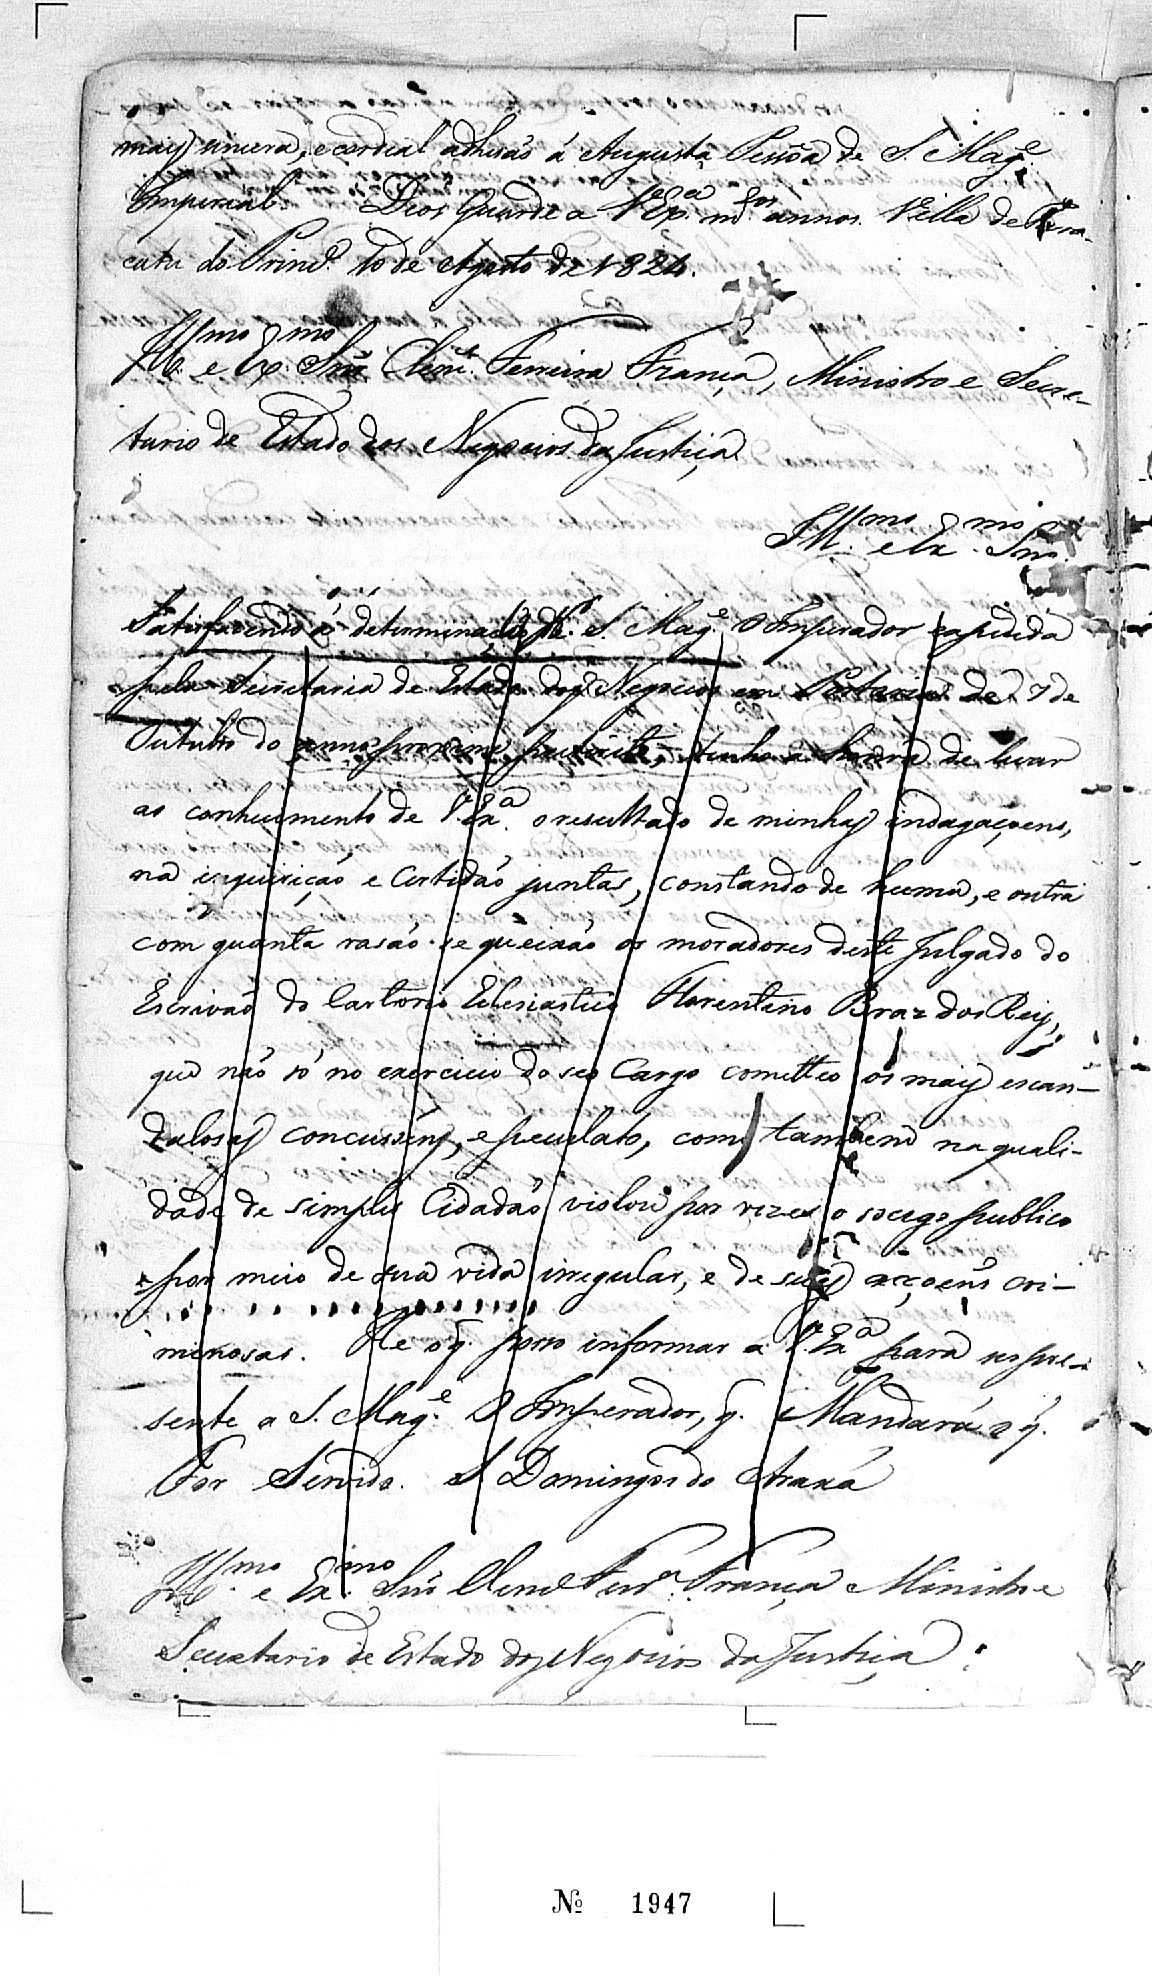 mais sincera, e cordial adhesão á Augusta Pessoa de S. Mag.e
Imperial. Deos Guarde a V. Ex.a m.s annos. Villa de Para-
catu do Princ.e 10 de Agosto de 1824.
Ill.mo e Ex.mo Snr. Clem.te Ferreira França, Ministro e Secre-
tario de Estado dos Negocios da Justiça.
Ill.mo e Ex.mo Snr.
Satisfazendo á determinação de S. Mag.e O Imperador expedida
pela Secretaria de Estado dos Negocios em Portaria de 7 de
Outubro do anno proximo preterito, tenho a honra de levar
ao conhecimento de V. Ex.a o resultado de minhas indagaçoens,
na inquirição e Certidão juntas, constando de huma, e outra
com quanta rasão se queixão os moradores deste Julgado do
Escrivão do Cartorio Eclesiastico Florentino Braz dos Reis,
que não só no exercicio do seo Cargo cometteo os mais escan-
dalosas concussões, e peculato, como tambem na quali-
dade de simples Cidadão violou por vezes o socego publico
por meio de sua vida irregular, e de suas acçoens cri-
minosas. He o q. posso informar a V. Ex.a para o pre-
sente a S. Mag.e O Imperador, q. Mandará o q.
For Servido. S. Domingos do Araxá
Ill.mo e Ex.mo Snr. Clem.e Ferr.a França Ministro e
Secretario de Estado dos Negocios da Justiça
№ 1947